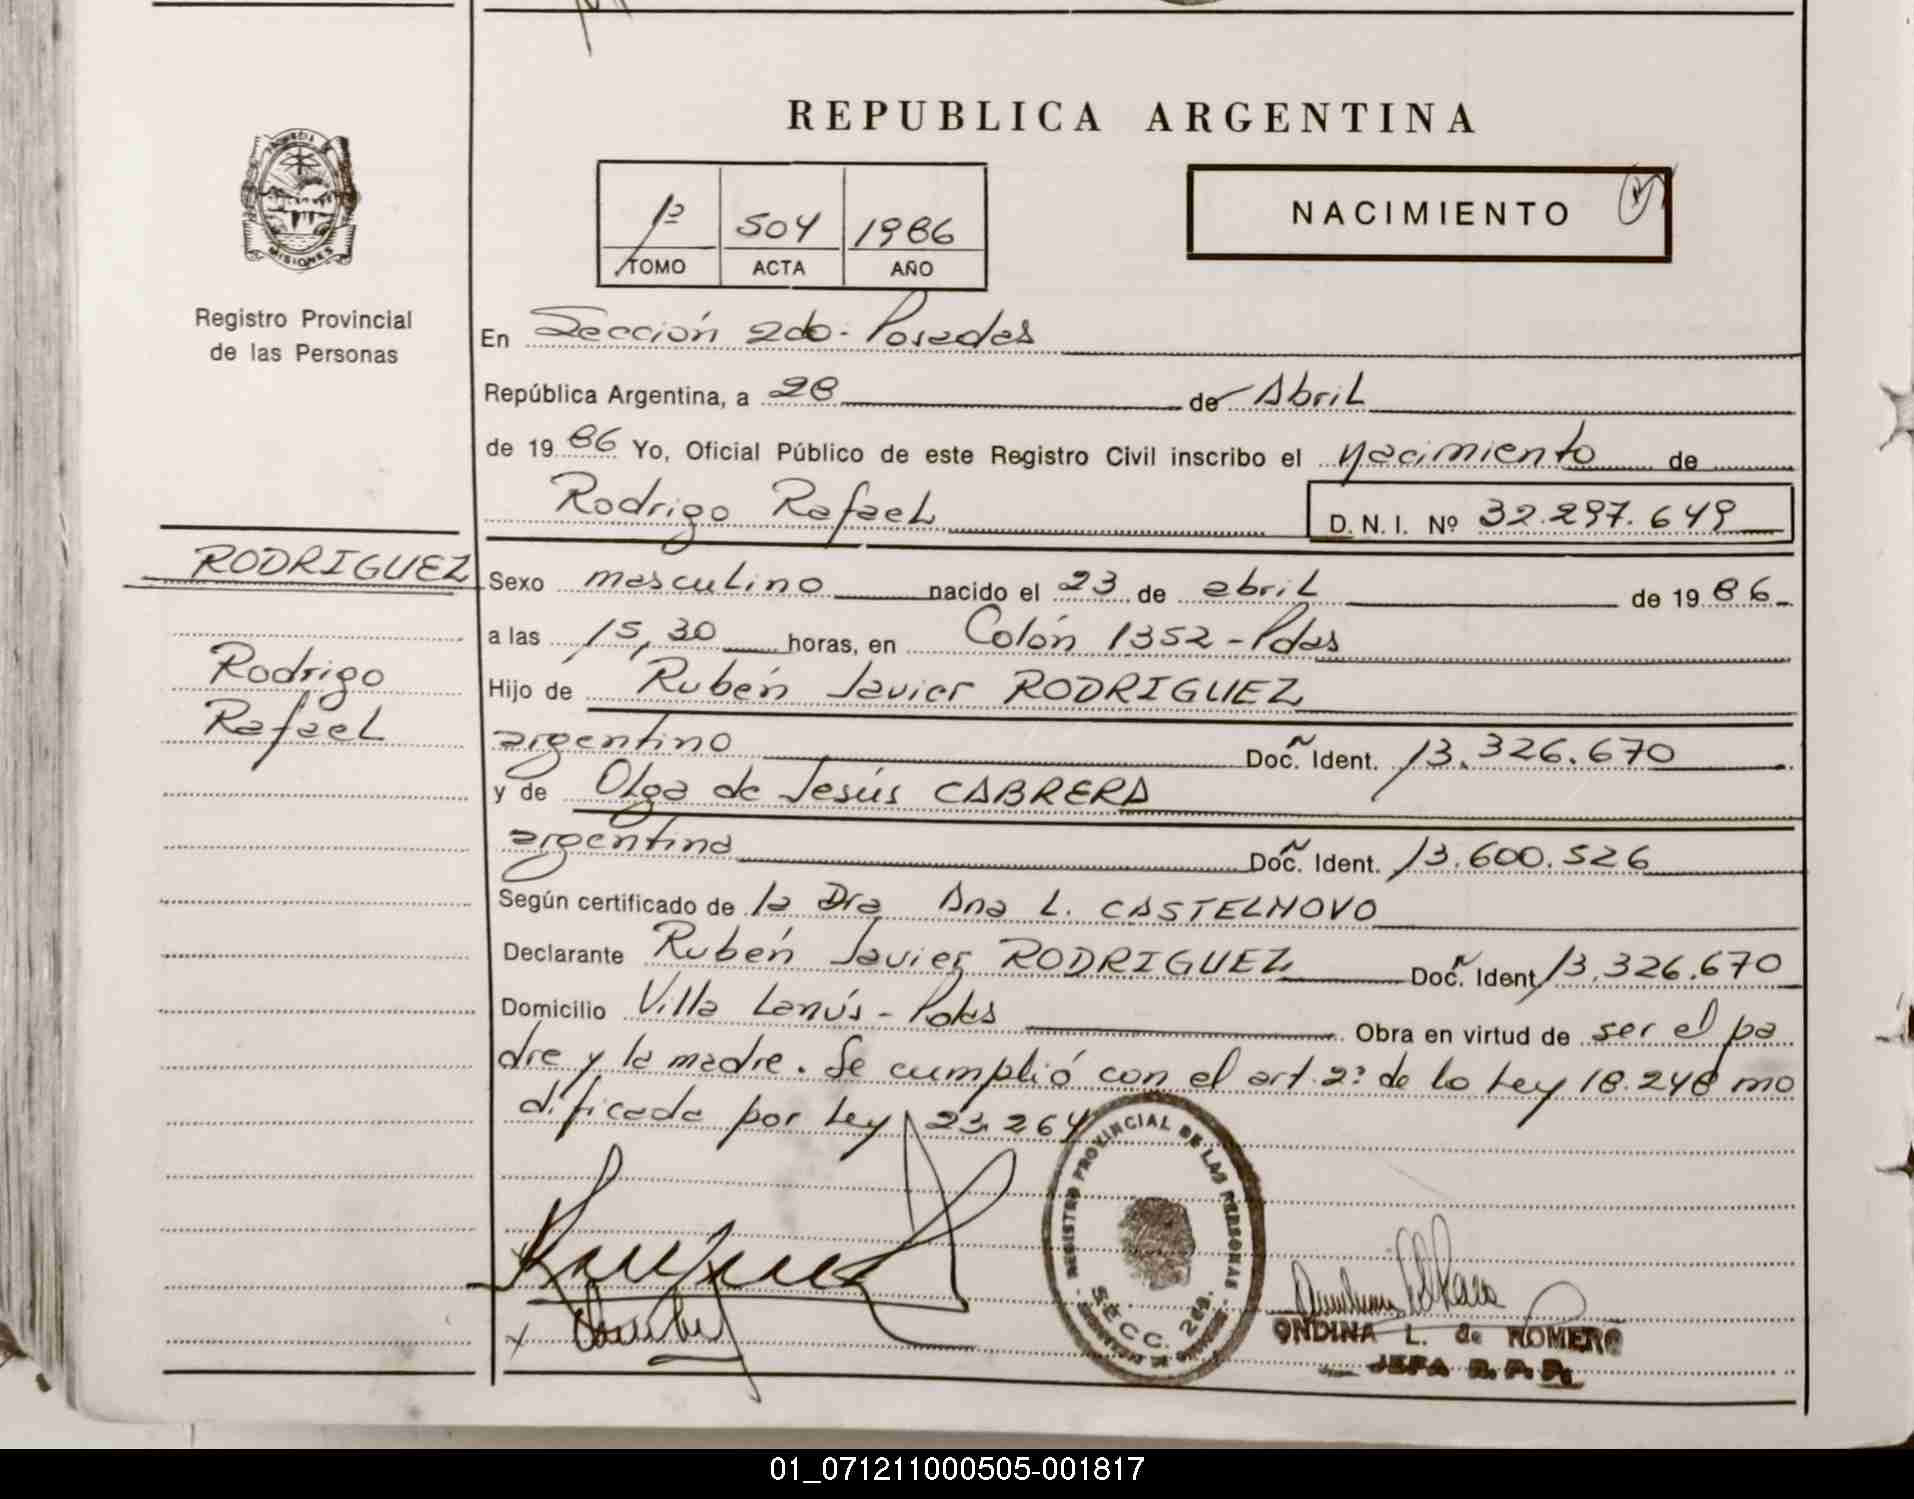 REPUBLICA ARGENTINA
PROVINCIA DE
MISIONES
Registro Provincial
de las Personas
1º 504 1986
TOMO ACTA AÑO
NACIMIENTO
En Sección 2da- Posadas
República Argentina, a 28 de Abril
de 1986 Yo, Oficial Público de este Registro Civil inscribo el nacimiento de
Rodrigo Rafael D. N. I. Nº 32.297.649
RODRIGUEZ
Rodrigo
Rafael
Sexo masculino nacido el 23 de abril de 1986-
a las 15,30 horas, en Colón 1352-Pdas
Hijo de Rubén Javier RODRIGUEZ
argentino Doc. Ident. 13.326.670
y de Olga de Jesús CABRERA
argentina Doc. Ident. 13.600.526
Según certificado de la Dra Ana L. CASTELNOVO
Declarante Rubén Javier RODRIGUEZ Doc. Ident 13.326.670
Domicilio Villa Lanús-Pdas Obra en virtud de ser el pa
dre y la madre. Se cumplió con el art. 2º de la Ley 18.248 mo
dificada por Ley 23.264
REGISTRO PROVINCIAL DE LAS PERSONAS
SECC. 2da.
ONDINA L. de ROMERO
JEFA R. P. P.
01_071211000505-001817